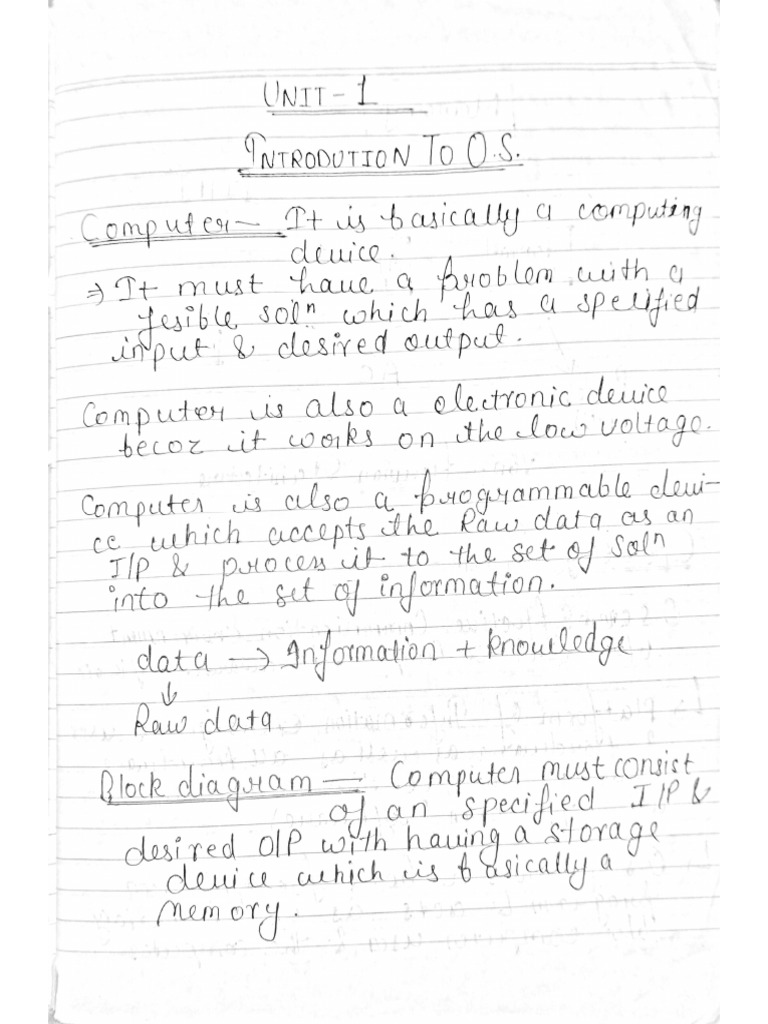 UNIT-1
INTRODUTION TO O.S.
Computer- It is basically a computing
device.
⇒ It must have a problem with a
fesible solⁿ which has a specified
input & desired output.
Computer is also a electronic device
becoz it works on the low voltage.
Computer is also a programmable devi-
ce which accepts the Raw data as an
I/P & process it to the set of solⁿ
into the set of information.
data → Information + knowledge
↓
Raw data
Block diagram — Computer must consist
of an specified I/P &
desired O/P with having a storage
device which is basically a
memory.